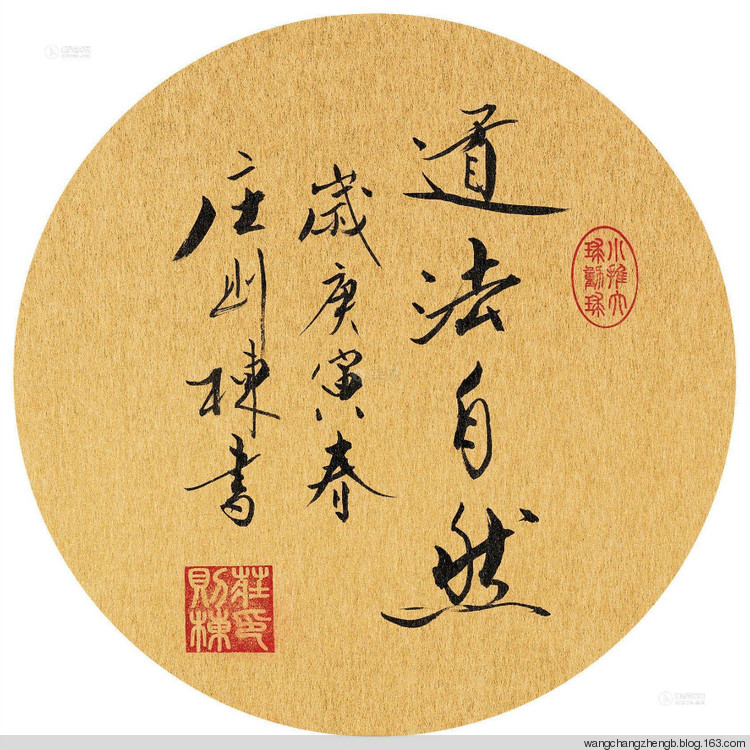 道法自然
歲庚寅春
庄则棟書
小球推動大球
莊則棟印
wangchangzhengb.blog.163.com